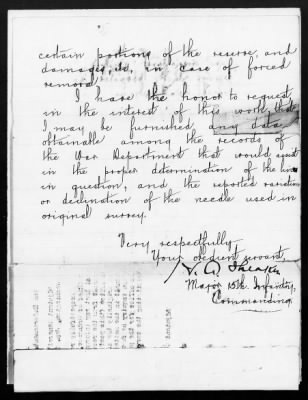 certain portions of the reserve, and
damages, &c, in case of forced
removal.
I have the honor to request,
in the interest of this work, that
I may be furnished any data
obtainable among the records of
the War Department that would assist
in the proper determination of the line
in question, and the reported variation
or declination of the needle used in
original survey.
Very respectfully,
Your obedient servant,
Major 15th. Infantry,
Commanding.